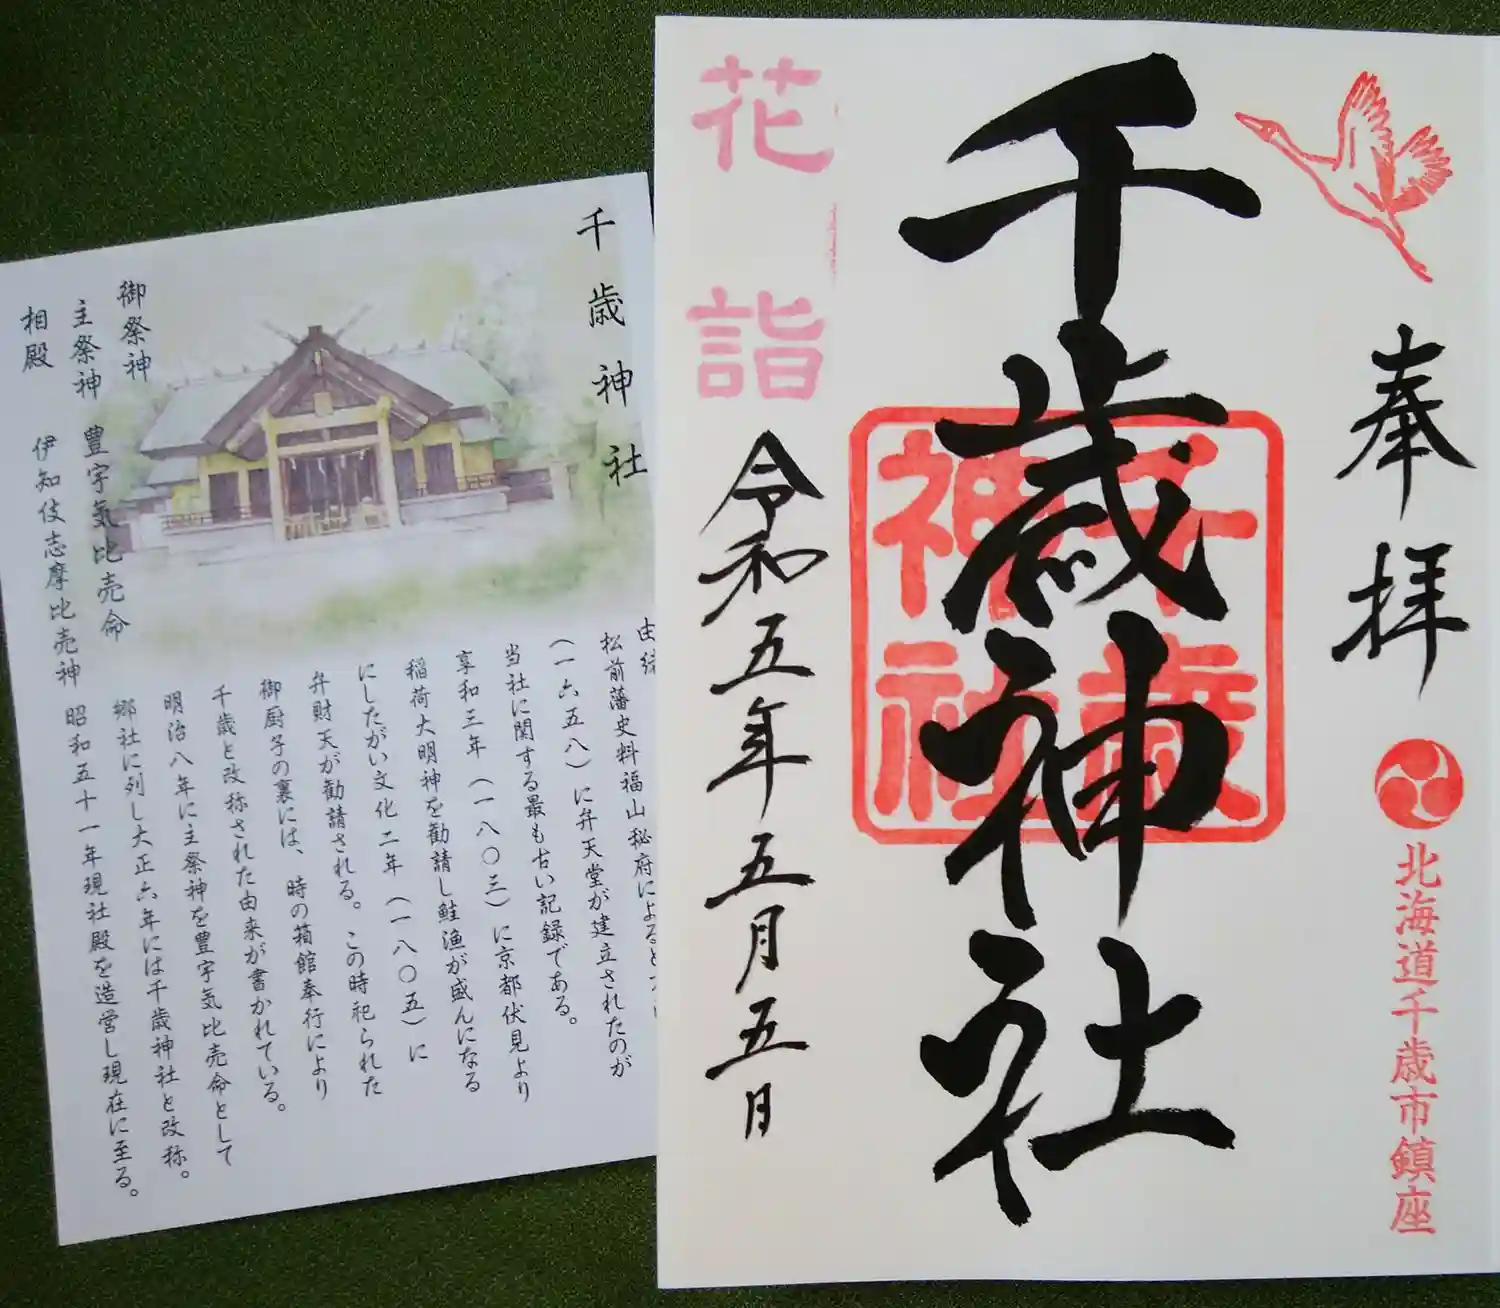 奉拝
北海道千歳市鎮座
千歳神社
千歳
神社
花詣
令和五年五月五日
千歳神社
御祭神
主祭神 豊宇気比売命
相殿 伊知伎志摩比売神
由緒
松前藩史料福山秘府によると
(一六五八)に弁天堂が建立されたのが
当社に関する最も古い記録である。
享和三年(一八〇三)に京都伏見より
稲荷大明神を勧請し鮭漁が盛んになる
にしたがい文化二年(一八〇五)に
弁財天が勧請される。この時祀られた
御厨子の裏には、時の箱館奉行により
千歳と改称された由来が書かれている。
明治八年に主祭神を豊宇気比売命として
郷社に列し大正六年には千歳神社と改称。
昭和五十一年現社殿を造営し現在に至る。